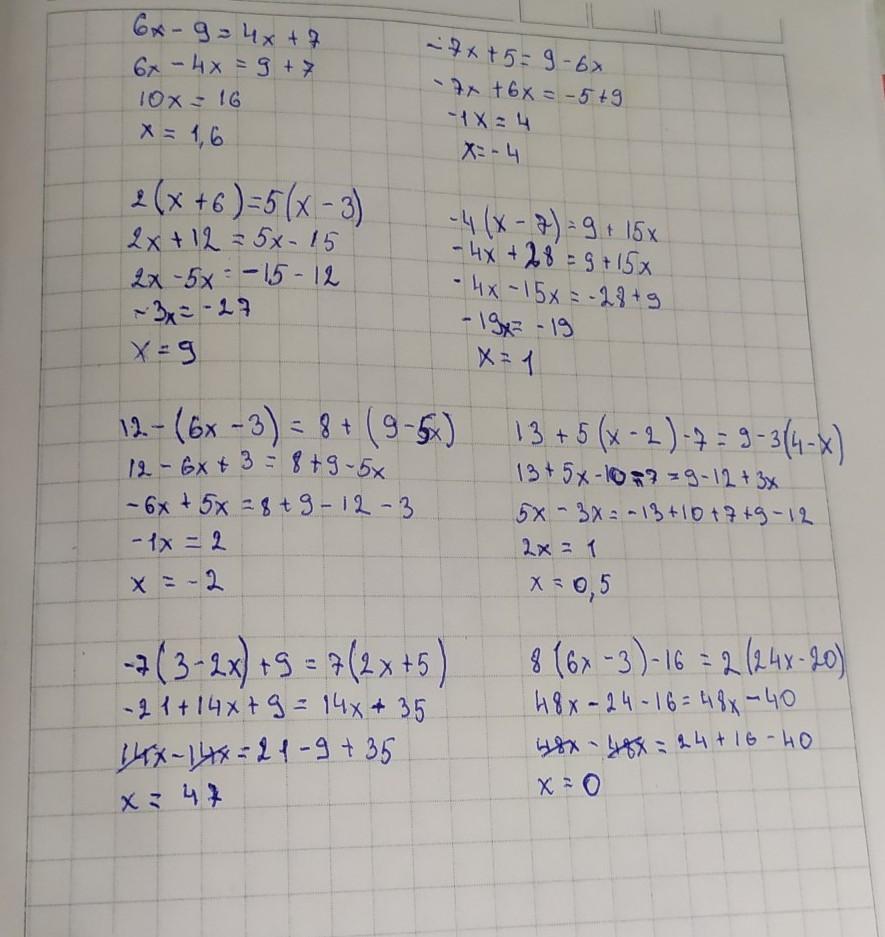 6x - 9 = 4x + 7
6x - 4x = 9 + 7
10x = 16
x = 1,6
-7x + 5 = 9 - 6x
-7x + 6x = -5 + 9
-1x = 4
x = -4
2(x + 6) = 5(x - 3)
2x + 12 = 5x - 15
2x - 5x = -15 - 12
-3x = -27
x = 9
-4(x - 7) = 9 + 15x
-4x + 28 = 9 + 15x
-4x - 15x = -28 + 9
-19x = -19
x = 1
12 - (6x - 3) = 8 + (9 - 5x)
12 - 6x + 3 = 8 + 9 - 5x
-6x + 5x = 8 + 9 - 12 - 3
-1x = 2
x = -2
13 + 5(x - 2) - 7 = 9 - 3(4 - x)
13 + 5x - 10 - 7 = 9 - 12 + 3x
5x - 3x = -13 + 10 + 7 + 9 - 12
2x = 1
x = 0,5
-7(3 - 2x) + 9 = 7(2x + 5)
-21 + 14x + 9 = 14x + 35
14x - 14x = 21 - 9 + 35
x = 47
8(6x - 3) - 16 = 2(24x - 20)
48x - 24 - 16 = 48x - 40
48x - 48x = 24 + 16 - 40
x = 0